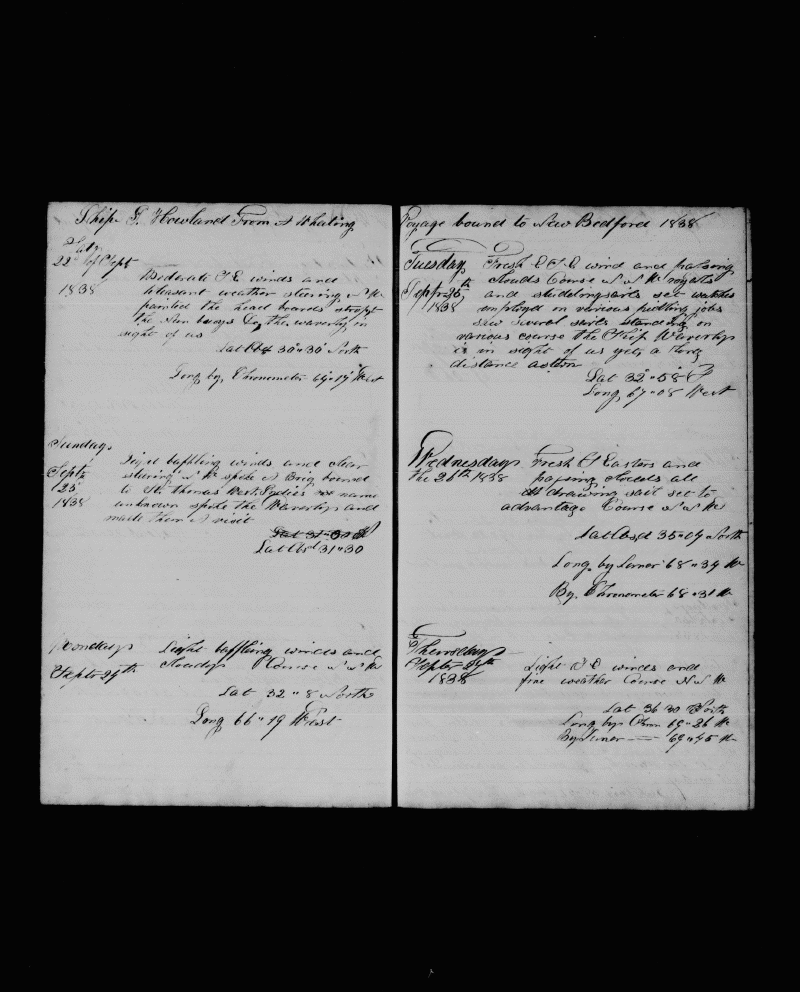 Ship G. Howland From A Whaling
Saty
22d of Sept
1838
Moderate S E winds and
pleasant weather steering N W
painted the head boards stropt
the Nun buoys &c the waverly in
sight of us
Lat Obs 30"30 North
Long by Chronometer West
Sunday
Septr
23
1838
Light baffling winds and clear
steering N W spoke A Brig bound
to St Thomas West Indies name
unknown spoke the Waverly and
made them A visit
Lat 31"30
Lat Obsd 31"30
Monday
Septr 24th
Light baffling winds and
Cloudy Course N W
Lat 32"8 North
Long 66"19 West
Voyage bound to New Bedford 1838
Tuesday
Septr 25th
1838
Fresh E S E wind and passing
clouds Course N N W royals
and studdingsails set watches
employed on various jobs
saw several sails standing on
various course the Ship Waverly
is in sight of us yet a long
distance astern
Lat 32"58
Long 67"08 West
Wednesday
the 26th 1838
Fresh S Easters and
passing clouds all
drawing sail set to
advantage Course N N W
Lat Obsd 35"04 North
Long by Lunar 68"34 W
By Chronometer 68"31 W
Thursday
Septr 27th
1838
Light S E winds and
fine weather Course N N W
Lat 36 30 North
Long by Chron 69"26 W
By Lunar — 69"45 W